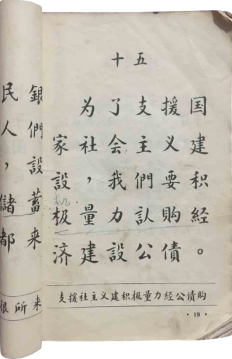 十五
为了支援国
家社会主义建
設，我們要积
极量力認购经
济建設公債。
支援社主义建积极力量经公债购
· 19 ·
民銀
人們
，設
儲蓄
都来
根所来